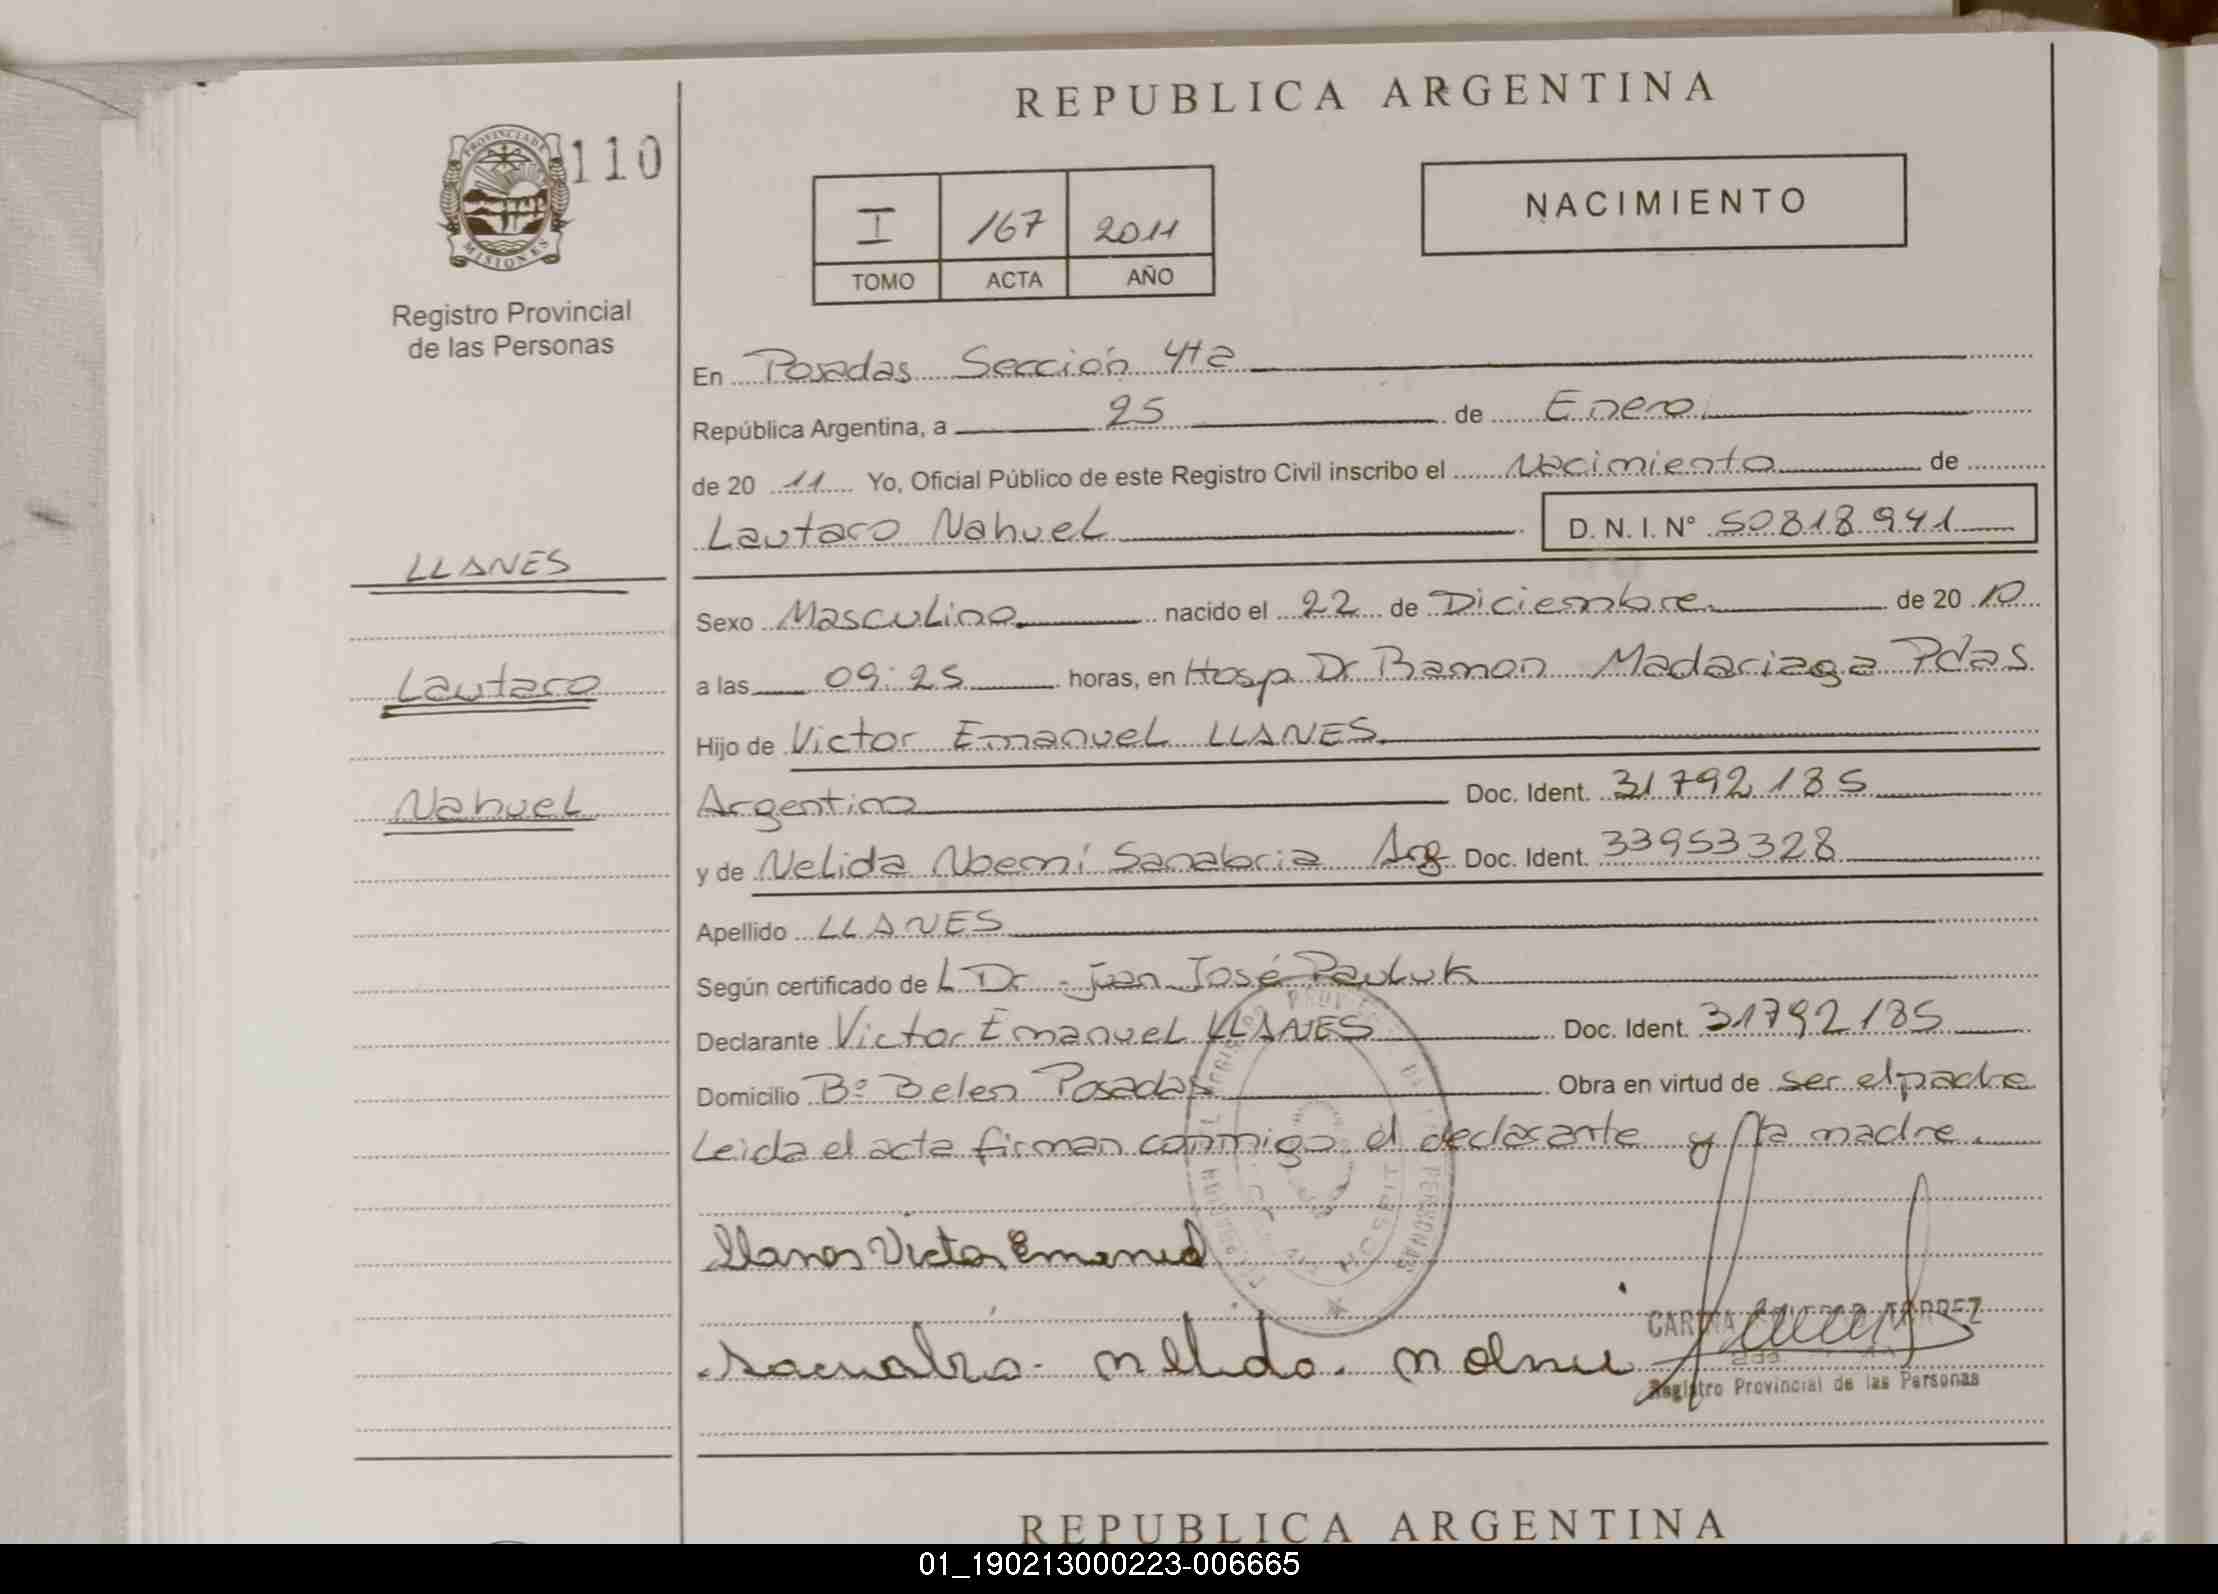 REPUBLICA ARGENTINA
110
PROVINCIA DE
MISIONES
Registro Provincial
de las Personas
I 167 2011
TOMO ACTA AÑO
NACIMIENTO
En Posadas Sección 4ta
República Argentina, a 25 de Enero
de 20 11 Yo, Oficial Público de este Registro Civil inscribo el Nacimiento de
Lautaro Nahuel D. N. I. N° 50818941
LLANES
Lautaro
Nahuel
Sexo Masculino nacido el 22 de Diciembre de 20 10
a las 09:25 horas, en Hosp Dr Ramon Madariaga Pdas
Hijo de Victor Emanuel LLANES
Argentino Doc. Ident. 31792185
y de Nelida Noemí Sanabria Arg Doc. Ident. 33953328
Apellido LLANES
Según certificado de L Dr. Juan José Pauluk
Declarante Victor Emanuel LLANES Doc. Ident. 31792185
Domicilio B° Belen Posadas Obra en virtud de ser el padre
Leida el acta firman conmigo el declarante y la madre.
Llanes Victor Emanuel
Registro Provincial de las Personas
REPUBLICA ARGENTINA
01_190213000223-006665